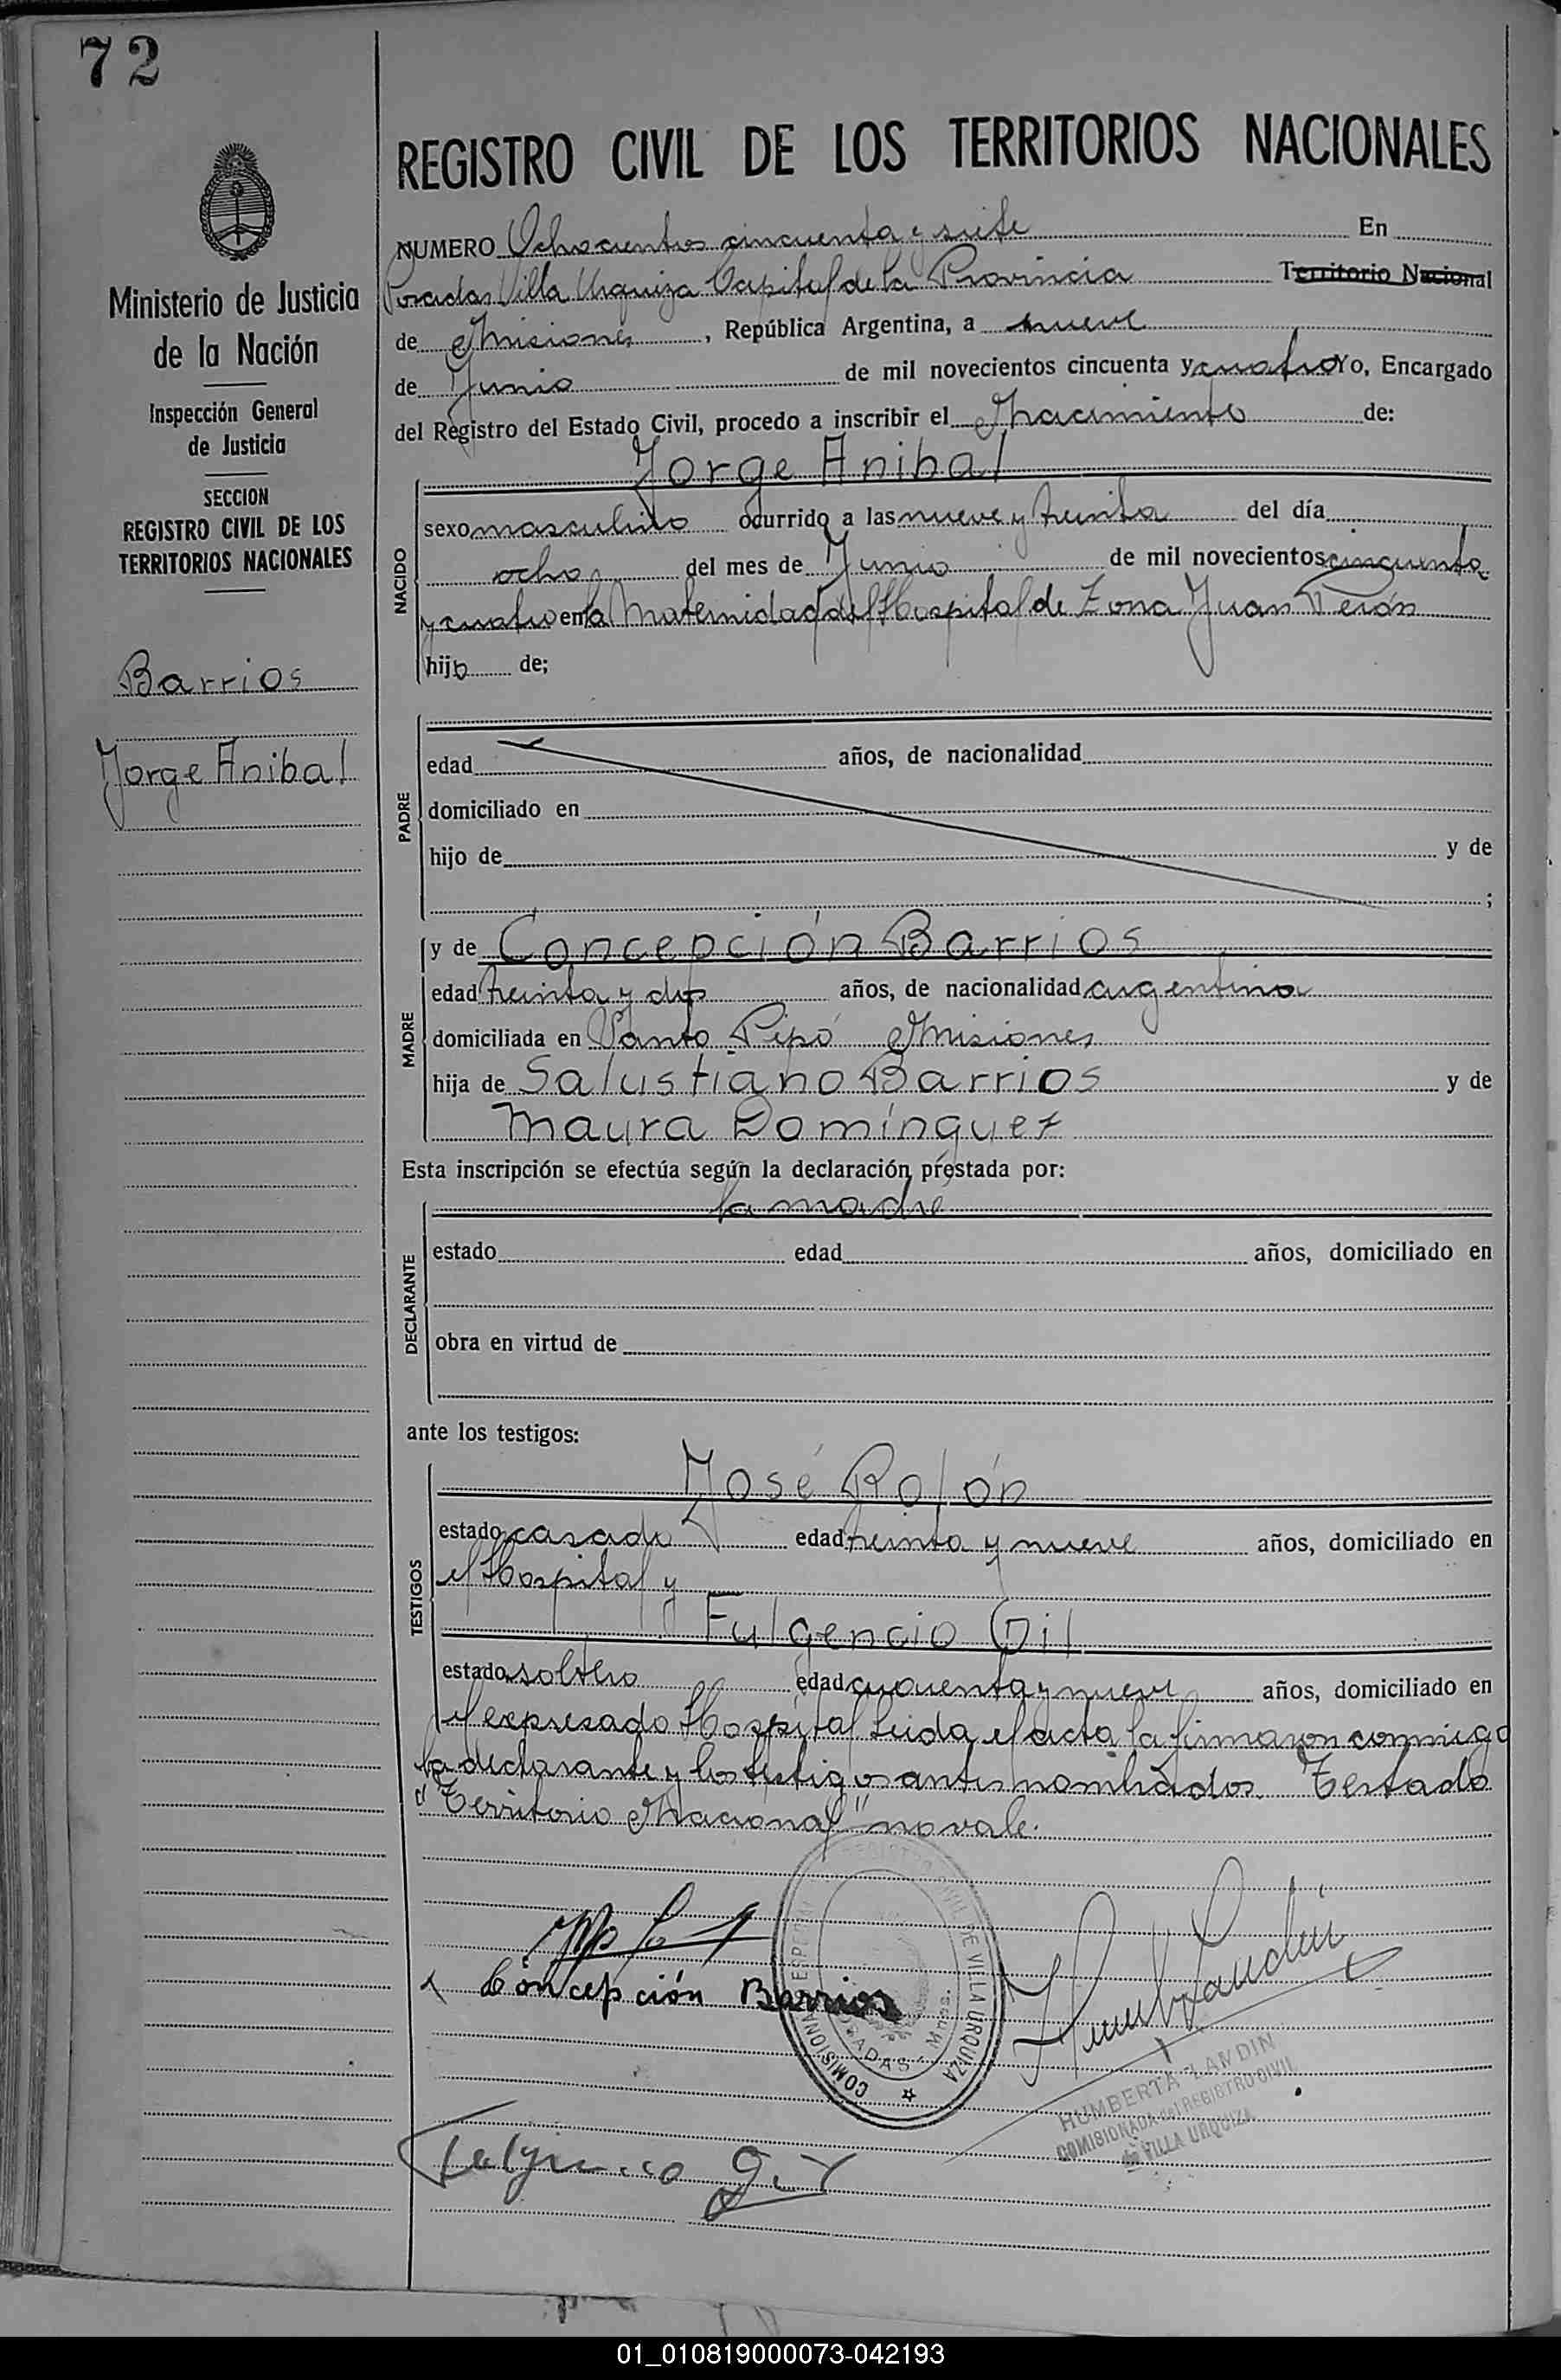 72
REGISTRO CIVIL DE LOS TERRITORIOS NACIONALES
Ministerio de Justicia
de la Nación
Inspección General
de Justicia
SECCION
REGISTRO CIVIL DE LOS
TERRITORIOS NACIONALES
Barrios
Jorge Anibal
NUMERO Ochocientos cincuenta y siete En
Posadas Villa Urquiza Capital de la Provincia Territorio Nacional
de Misiones, República Argentina, a nueve
de Junio de mil novecientos cincuenta y cuatro Yo, Encargado
del Registro del Estado Civil, procedo a inscribir el Nacimiento de:
Jorge Anibal
NACIDO
sexo masculino ocurrido a las nueve y treinta del día
ocho del mes de Junio de mil novecientos cincuenta
y cuatro en la Maternidad del Hospital de Zona Juan Perón
hijo de;
PADRE
edad años, de nacionalidad
domiciliado en
hijo de y de
;
MADRE
y de Concepción Barrios
edad treinta y dos años, de nacionalidad argentina
domiciliada en Santo Pipó Misiones
hija de Salustiano Barrios y de
Maura Domínguez
Esta inscripción se efectúa según la declaración prestada por:
la madre
DECLARANTE
estado edad años, domiciliado en
obra en virtud de
ante los testigos:
TESTIGOS
José Rolón
estado casado edad treinta y nueve años, domiciliado en
el Hospital y
Fulgencio Gil
estado soltero edad cuarenta y nueve años, domiciliado en
el expresado Hospital Leida el acta la firmaron conmigo
la declarante y los testigos antes nombrados. Testado
"Territorio Nacional" no vale.
Concepción Barrios
REGISTRO CIVIL DE VILLA URQUIZA
COMISIONADA ESPECIAL
POSADAS - Mnes.
Humb Landin
HUMBERTA LANDIN
COMISIONADA del REGISTRO CIVIL
de VILLA URQUIZA
Fulgencio Gil
01_010819000073-042193